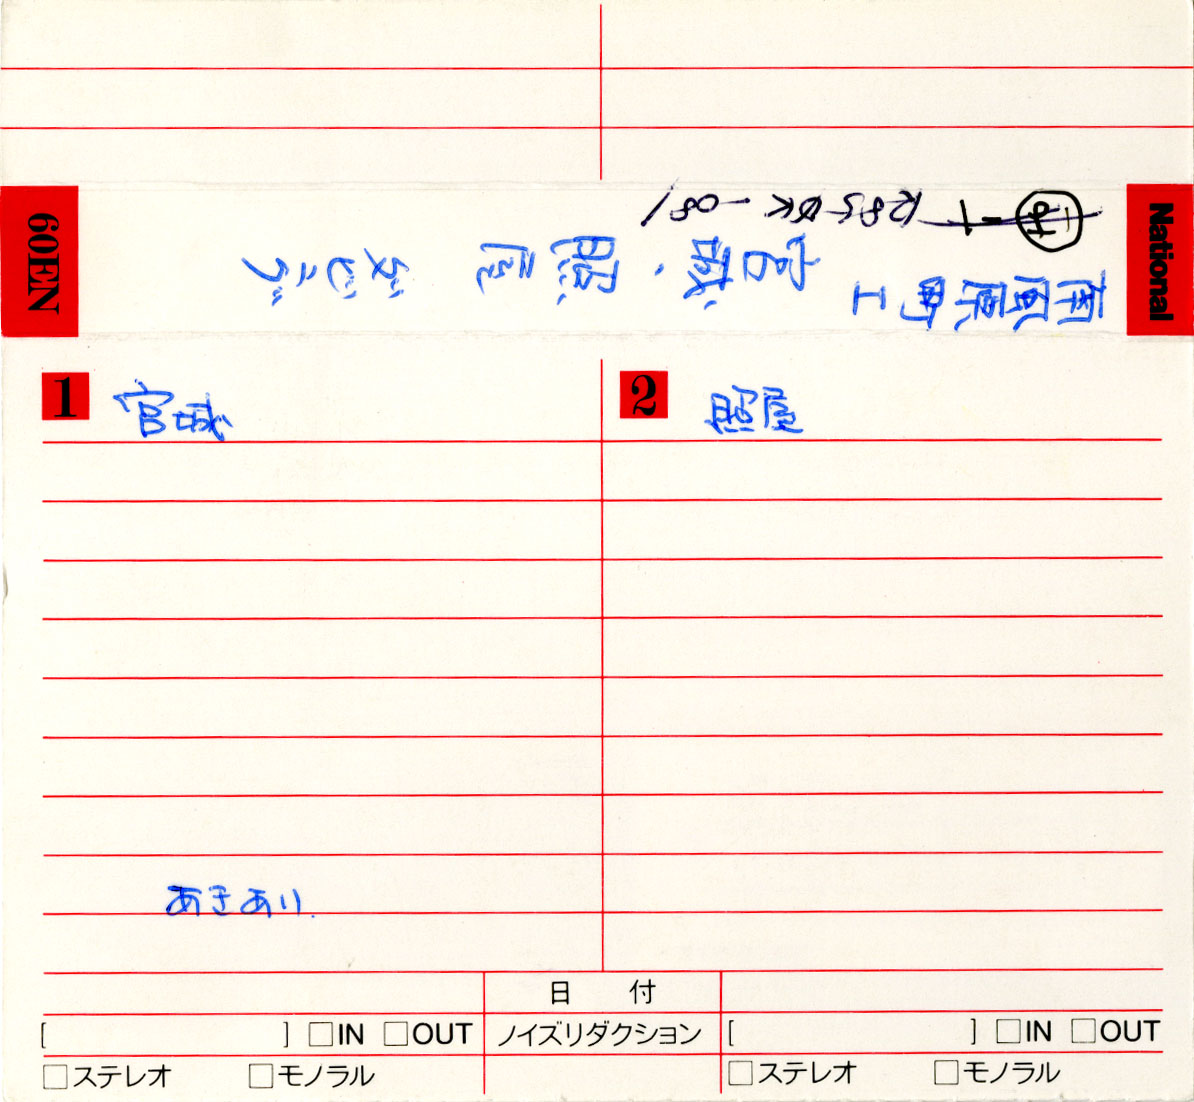 National
60EN
南風原町工
宮城、照屋 ダビング
1 宮城
2 照屋
あきあり.
日 付
[ ] □IN □OUT ノイズリダクション [ ] □IN □OUT
□ステレオ □モノラル □ステレオ □モノラル